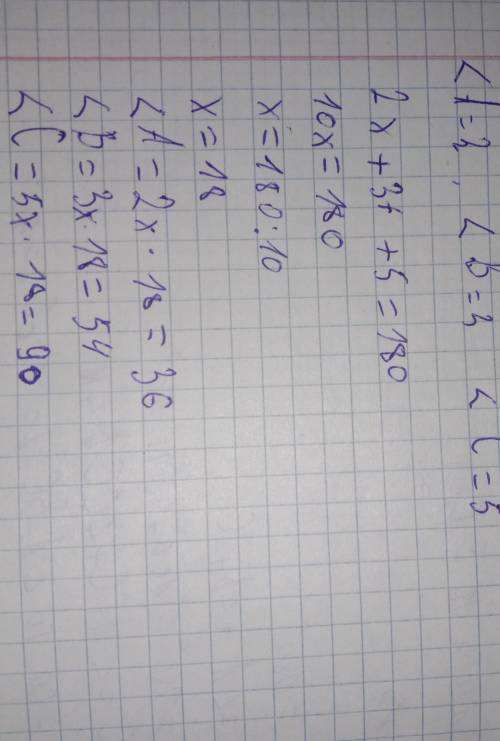 ∠A=2, ∠B=3 ∠C=5
2x+3x+5=180
10x=180
x=180:10
x=18
∠A=2x·18=36
∠B=3x·18=54
∠C=5x·18=90